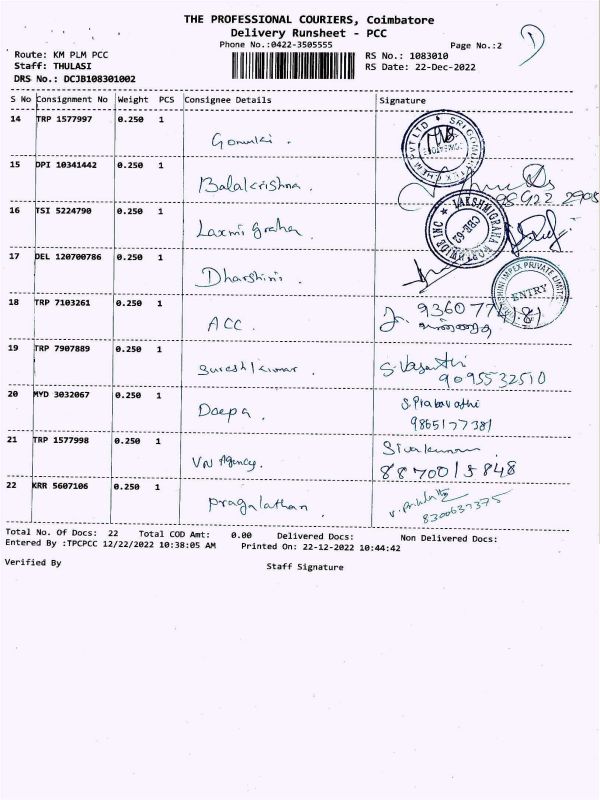 THE PROFESSIONAL COURIERS, Coimbatore
Delivery Runsheet - PCC
Phone No.:0422-3505555
Page No.:2
Route: KM PLM PCC
RS No.: 1083010
Staff: THULASI
RS Date: 22-Dec-2022
DRS No.: DCJB108301002
S No Consignment No Weight PCS Consignee Details Signature
14 TRP 1577997 0.250 1
Gomathi.
15 DPI 10341442 0.250 1
Balakrishna.
16 TSI 5224790 0.250 1
Laxmi graha.
17 DEL 120700786 0.250 1
Dharshini.
18 TRP 7103261 0.250 1
ACC.
19 TRP 7907889 0.250 1
Sureshkumar. S. Vasanthi
9095532510
20 MYD 3032067 0.250 1
Deepa. S. Prabavathi
9865177381
21 TRP 1577998 0.250 1
VN Agency. Sivakumar
8870015848
22 KRR 5607106 0.250 1
Pragalathan.
8300637375
LAKSHMIGRAHA WORLDWIDE INC
CBE-62
IMPEX PRIVATE LIMITED
ENTRY
Total No. Of Docs: 22 Total COD Amt: 0.00 Delivered Docs: Non Delivered Docs:
Entered By :TPCPCC 12/22/2022 10:38:05 AM Printed On: 22-12-2022 10:44:42
Verified By
Staff Signature